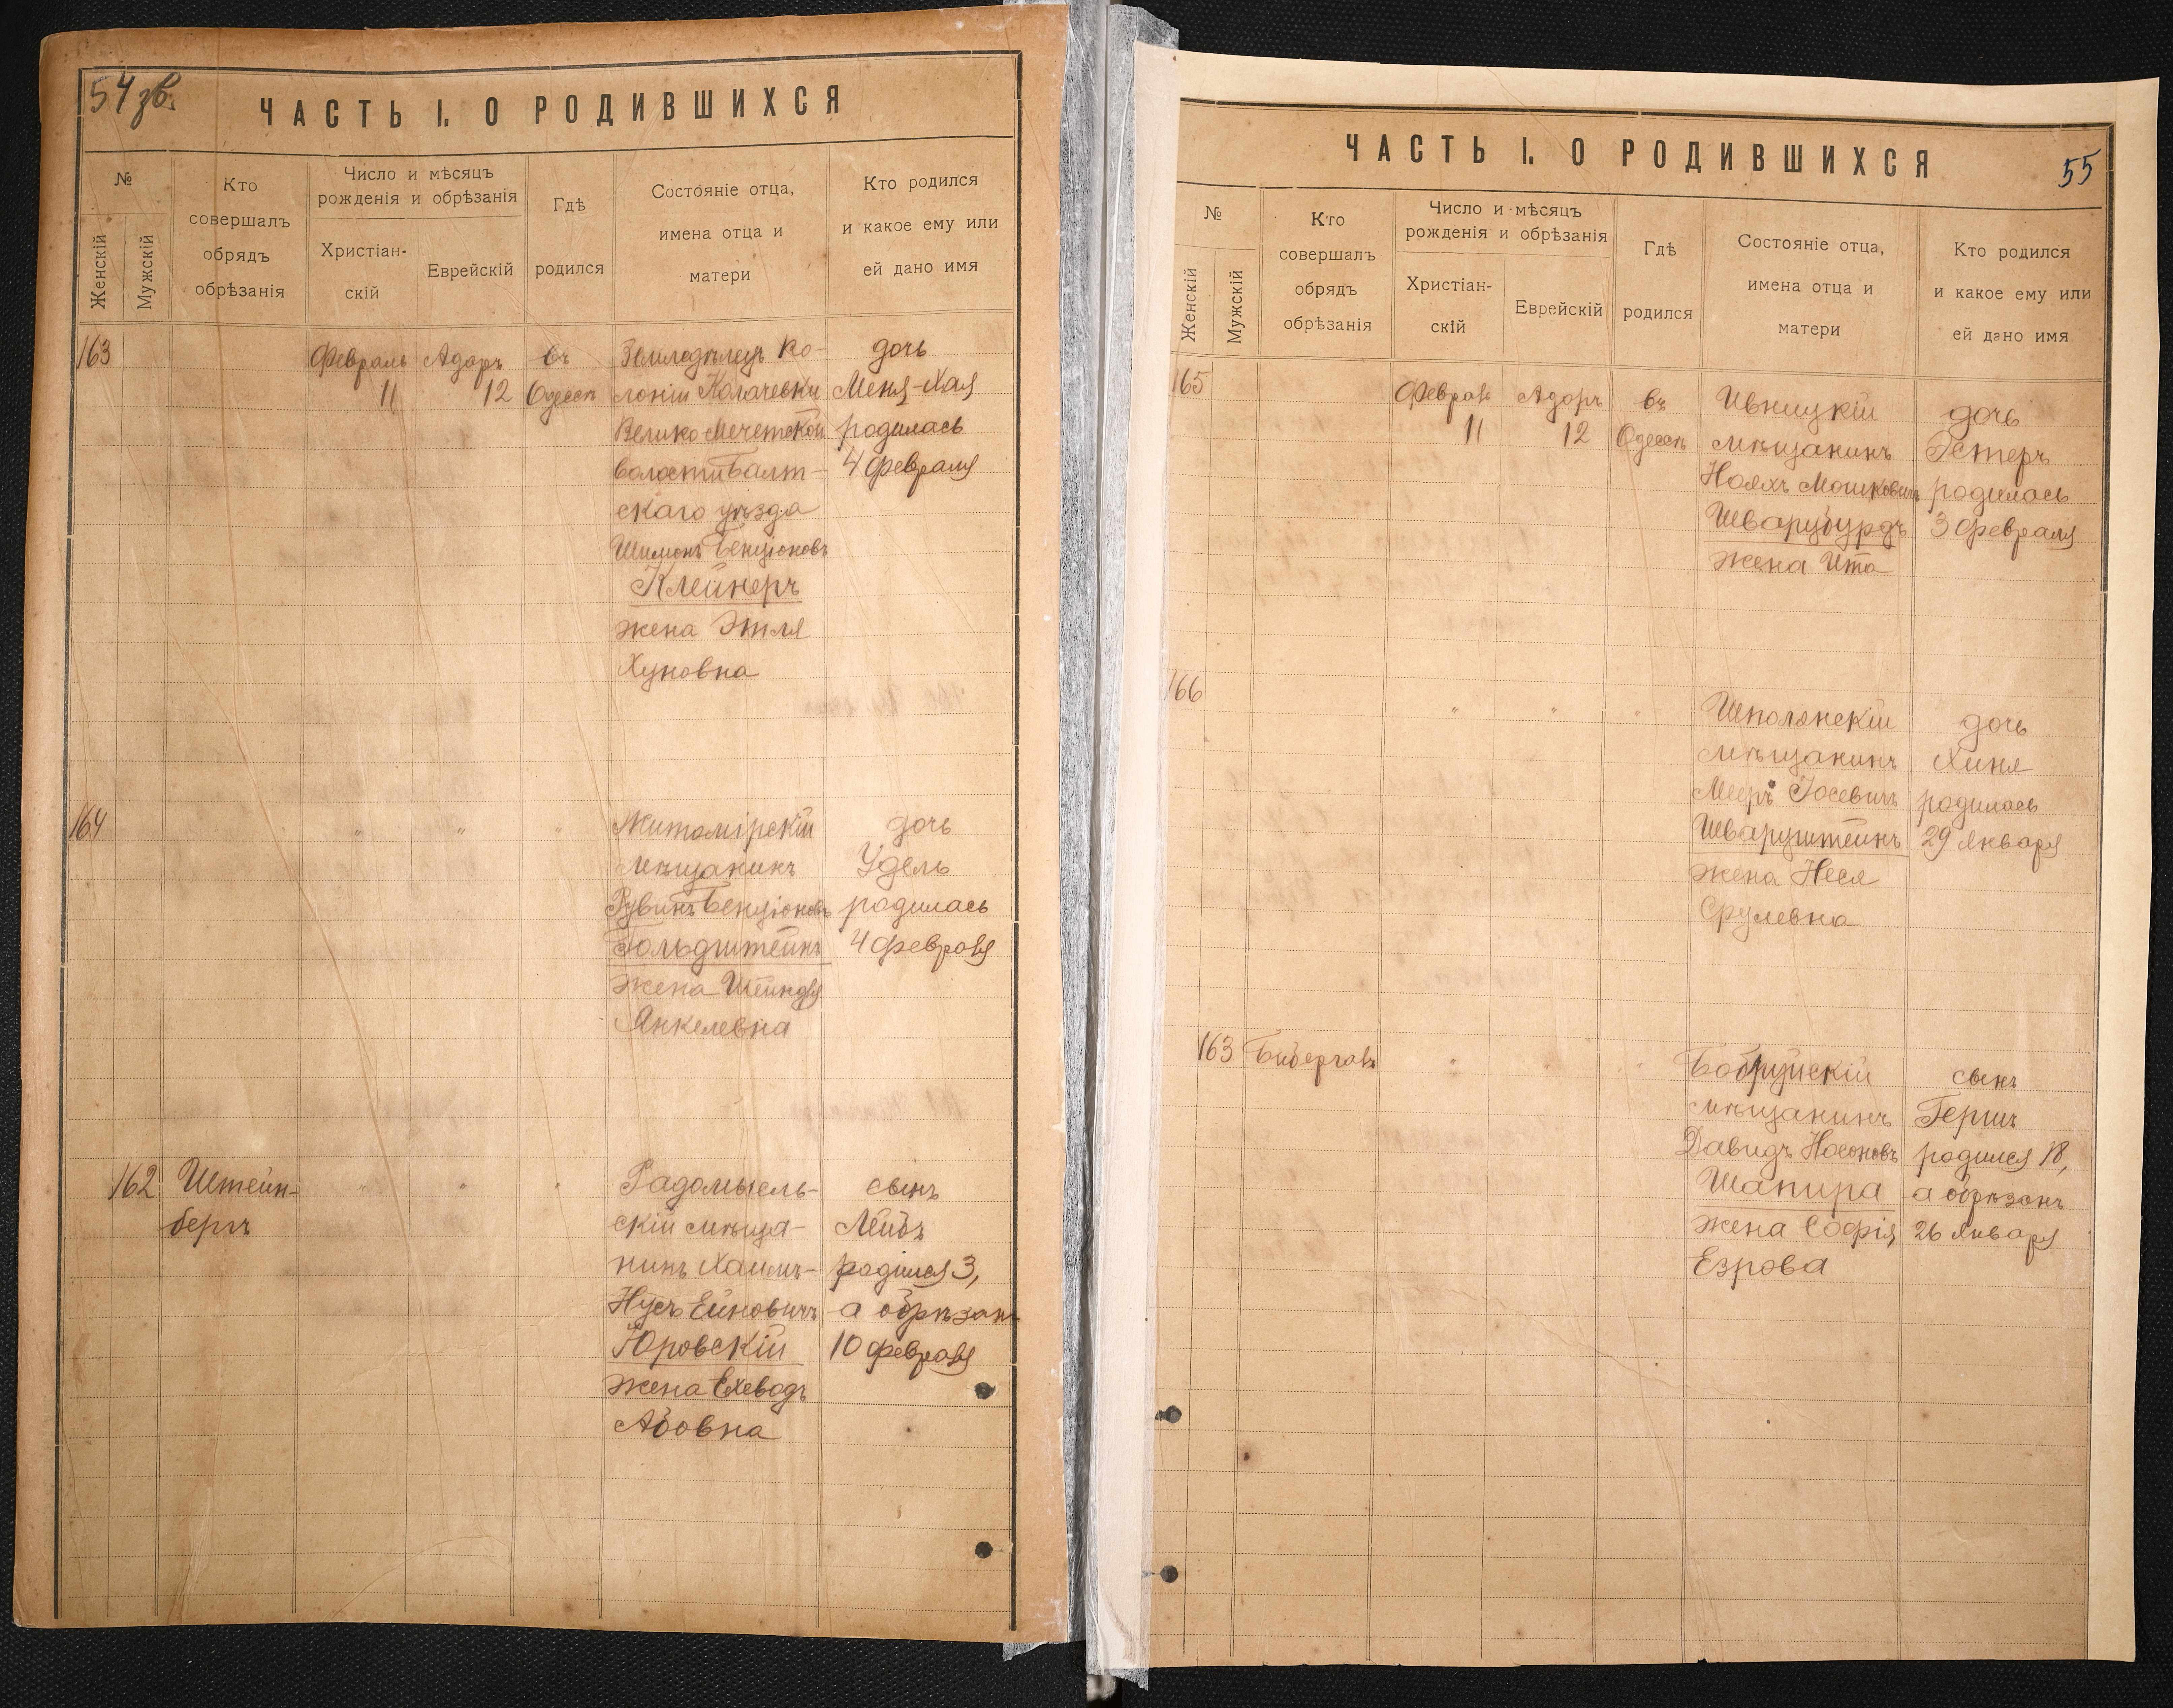 54 зв.
ЧАСТЬ I. О РОДИВШИХСЯ
№
Женскій
Мужскій
Кто
совершалъ
обрядъ
обрѣзанія
Число и мѣсяцъ
рожденія и обрѣзанія
Христіан-
скій
Еврейскій
Гдѣ
родился
Состояніе отца,
имена отца и
матери
Кто родился
и какое ему или
ей дано имя
163
Февраль
11
Адаръ
12
въ
Одессѣ
Земледѣлецъ ко-
лоніи
Велико-Мечетской
волости Балт-
скаго уѣзда
Шимонъ Бенціоновъ
Клейнеръ
жена Этля
Хуновна
дочь
Меня-Хая
родилась
4 февраля
164
" " "
Житомірскій
мѣщанинъ
Рувинъ Бенціоновъ
Гольдштейнъ
жена Шейндля
Янкелевна
дочь
Удель
родилась
4 февраля
162
Штейн-
бергъ
" " "
Радомысль-
скій мѣща-
нинъ Хаимъ-
Нусъ Ейновичъ
Юровскій
жена Ехевадъ
Абовна
сынъ
Лейбъ
родился 3,
а обрѣзанъ
10 февраля
ЧАСТЬ I. О РОДИВШИХСЯ
55
№
Женскій
Мужскій
Кто
совершалъ
обрядъ
обрѣзанія
Число и мѣсяцъ
рожденія и обрѣзанія
Христіан-
скій
Еврейскій
Гдѣ
родился
Состояніе отца,
имена отца и
матери
Кто родился
и какое ему или
ей дано имя
165
Февраль
11
Адаръ
12
въ
Одессѣ
Ивницкій
мѣщанинъ
Ноахъ Мошковичъ
Шварцбурдъ
жена Ита
дочь
Эстеръ
родилась
3 февраля
166
" " "
Шполянскій
мѣщанинъ
Мееръ Іосевичъ
Шварцштейнъ
жена Неся
Срулевна
дочь
Хиня
родилась
29 Января
163
Бибергалъ
" " "
Бобруйскій
мѣщанинъ
Давидъ Носоновъ
Шапира
жена Софія
Езрова
сынъ
Гершъ
родился 18,
а обрѣзанъ
26 Января